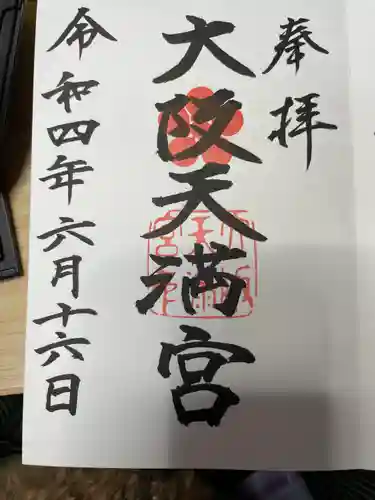 奉拝
大阪天満宮
令和四年六月十六日